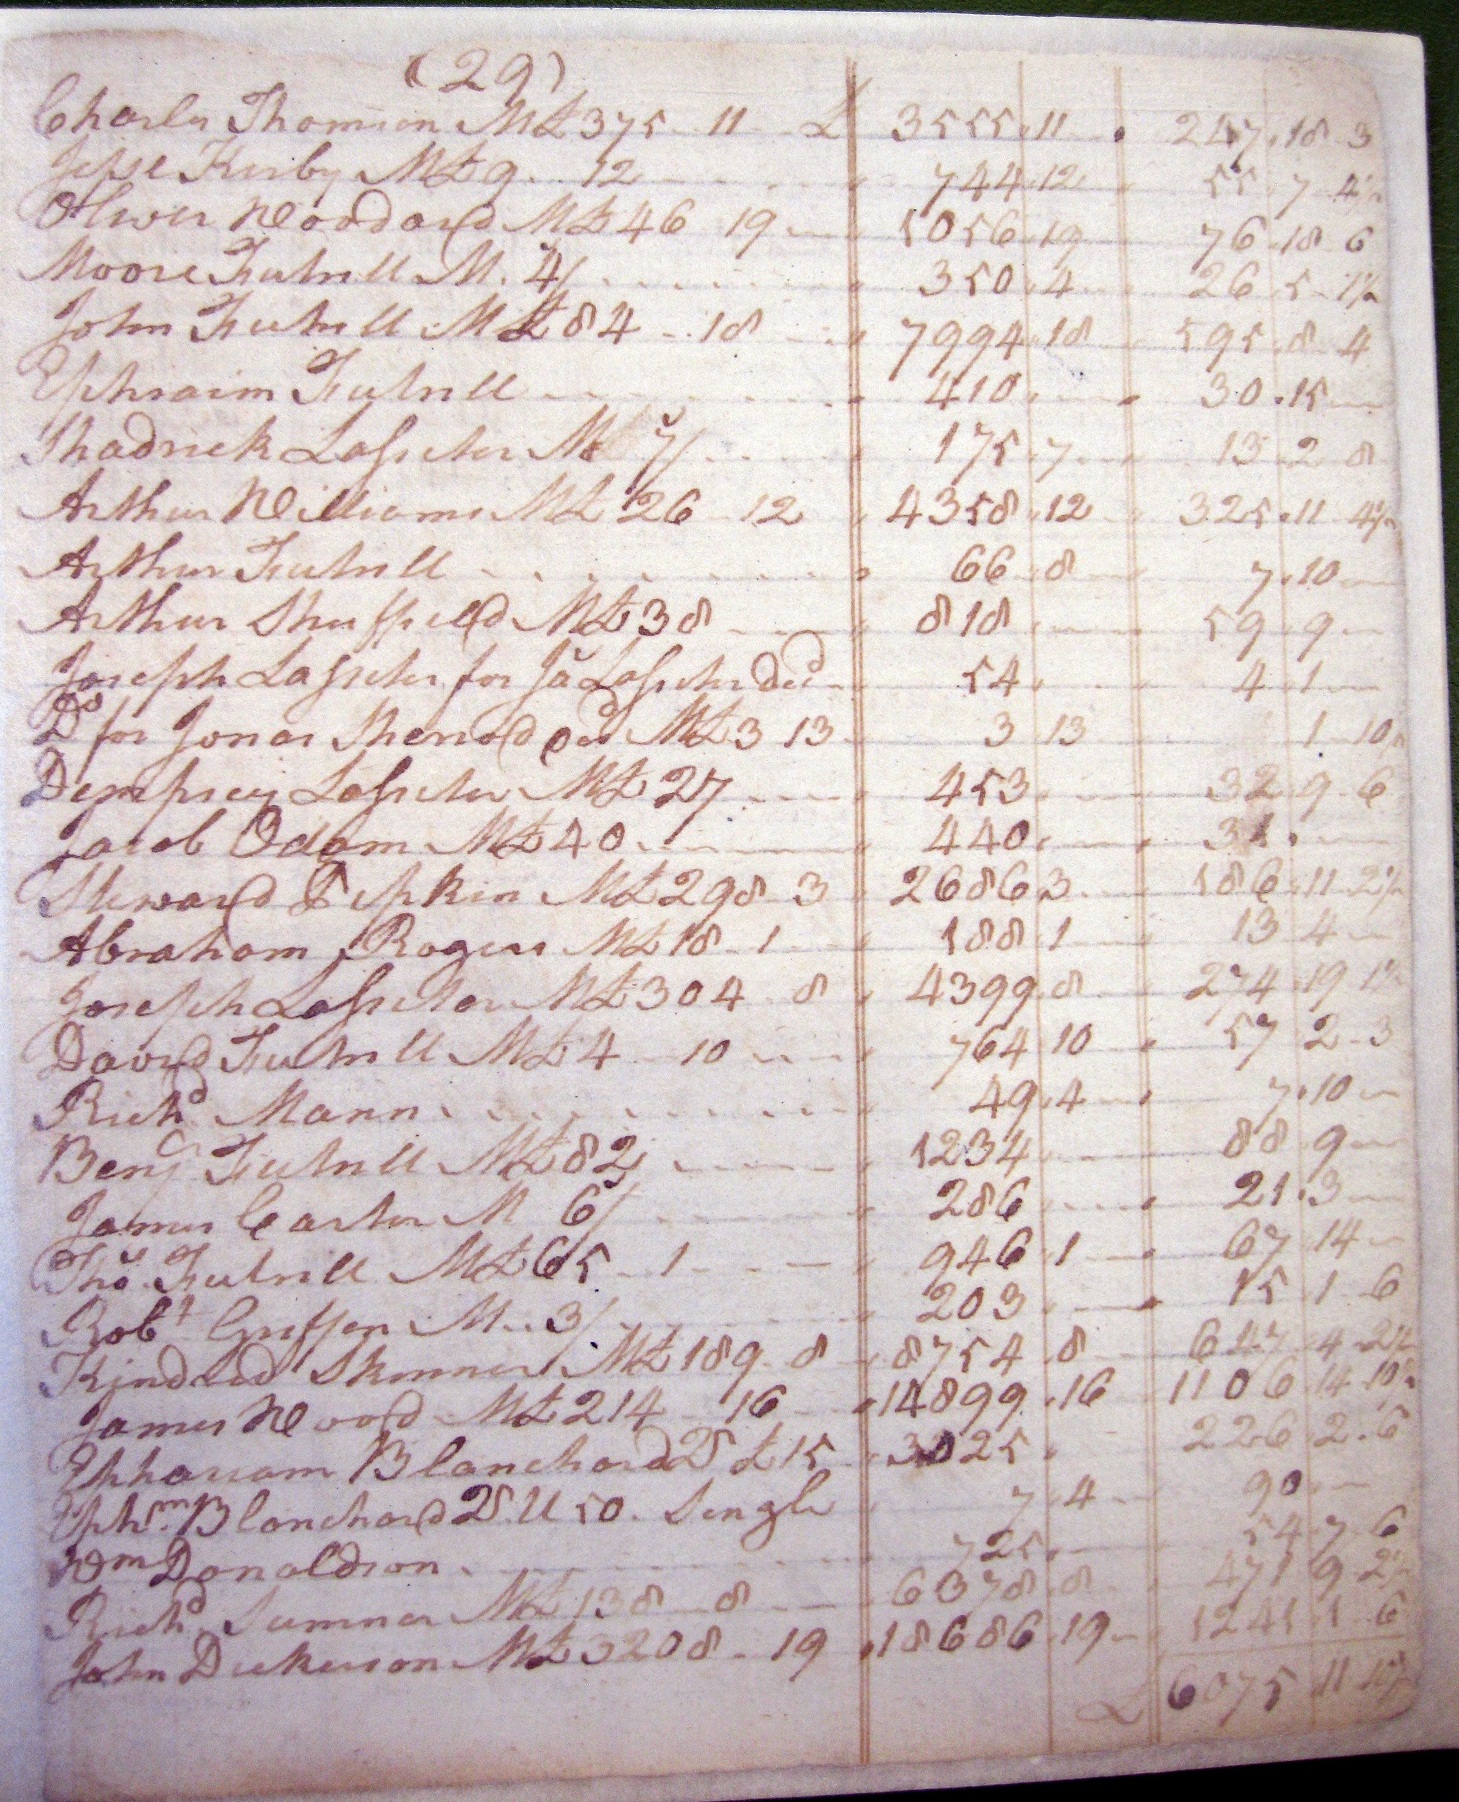 (29)
Charles Thomson M£375 11 £ 3555 11 247 18 3
Jesse Kirby M£9 12 744 12 55 7 4½
Oliver Woodard M£46 19 5056 19 76 18 6
Moore Futrell M. 4/ 350 4 26 5 1½
John Futrell M£84 18 7994 18 595 8 4
Ephraim Futrell 410 30 15
Shadrick Lassiter M 7/ 175 7 13 2 8
Arthur Williams M£26 12 4358 12 325 11 4½
Arthur Futrell 66 8 7 10
Arthur Sheffield M£38 818 59 9
Joseph Lassiter for Ja Lassiter Decd 54 4 1
Do for Jonas Sherrod Decd M£3 13 3 13 1 10
Dempsey Lassiter M£27 453 32 9 6
Jacob Odom M£40 440 31
Steward Pipkin M£298 3 2686 3 186 11 2½
Abraham Rogers M£18 1 188 1 13 4
Joseph Lassiter M£304 8 4399 8 274 19 1½
David Futrell M£4 10 764 10 57 2 3
Richd Mann 49 4 7 10
Benj Futrell M£82 1234 88 9
James Carter M 6/ 286 21 3
Tho. Futrell M£65 1 946 1 67 14
Robt Griffen M. 3/ 203 15 1 6
Kindred Skinner M£189 8 8754 8 647 4 2½
James Wood M£214 16 14899 16 1106 14 10½
Ephariam Blanchard £15 3025 226 2 6
Ephrm. Blanchard 50. Single 7 4 90
Wm Donaldson 725 54 7 6
Richd Sumner M£138 8 6378 8 471 9 2½
John Dickerson M£3208 19 18686 19 1241 1 6
£ 6075 11